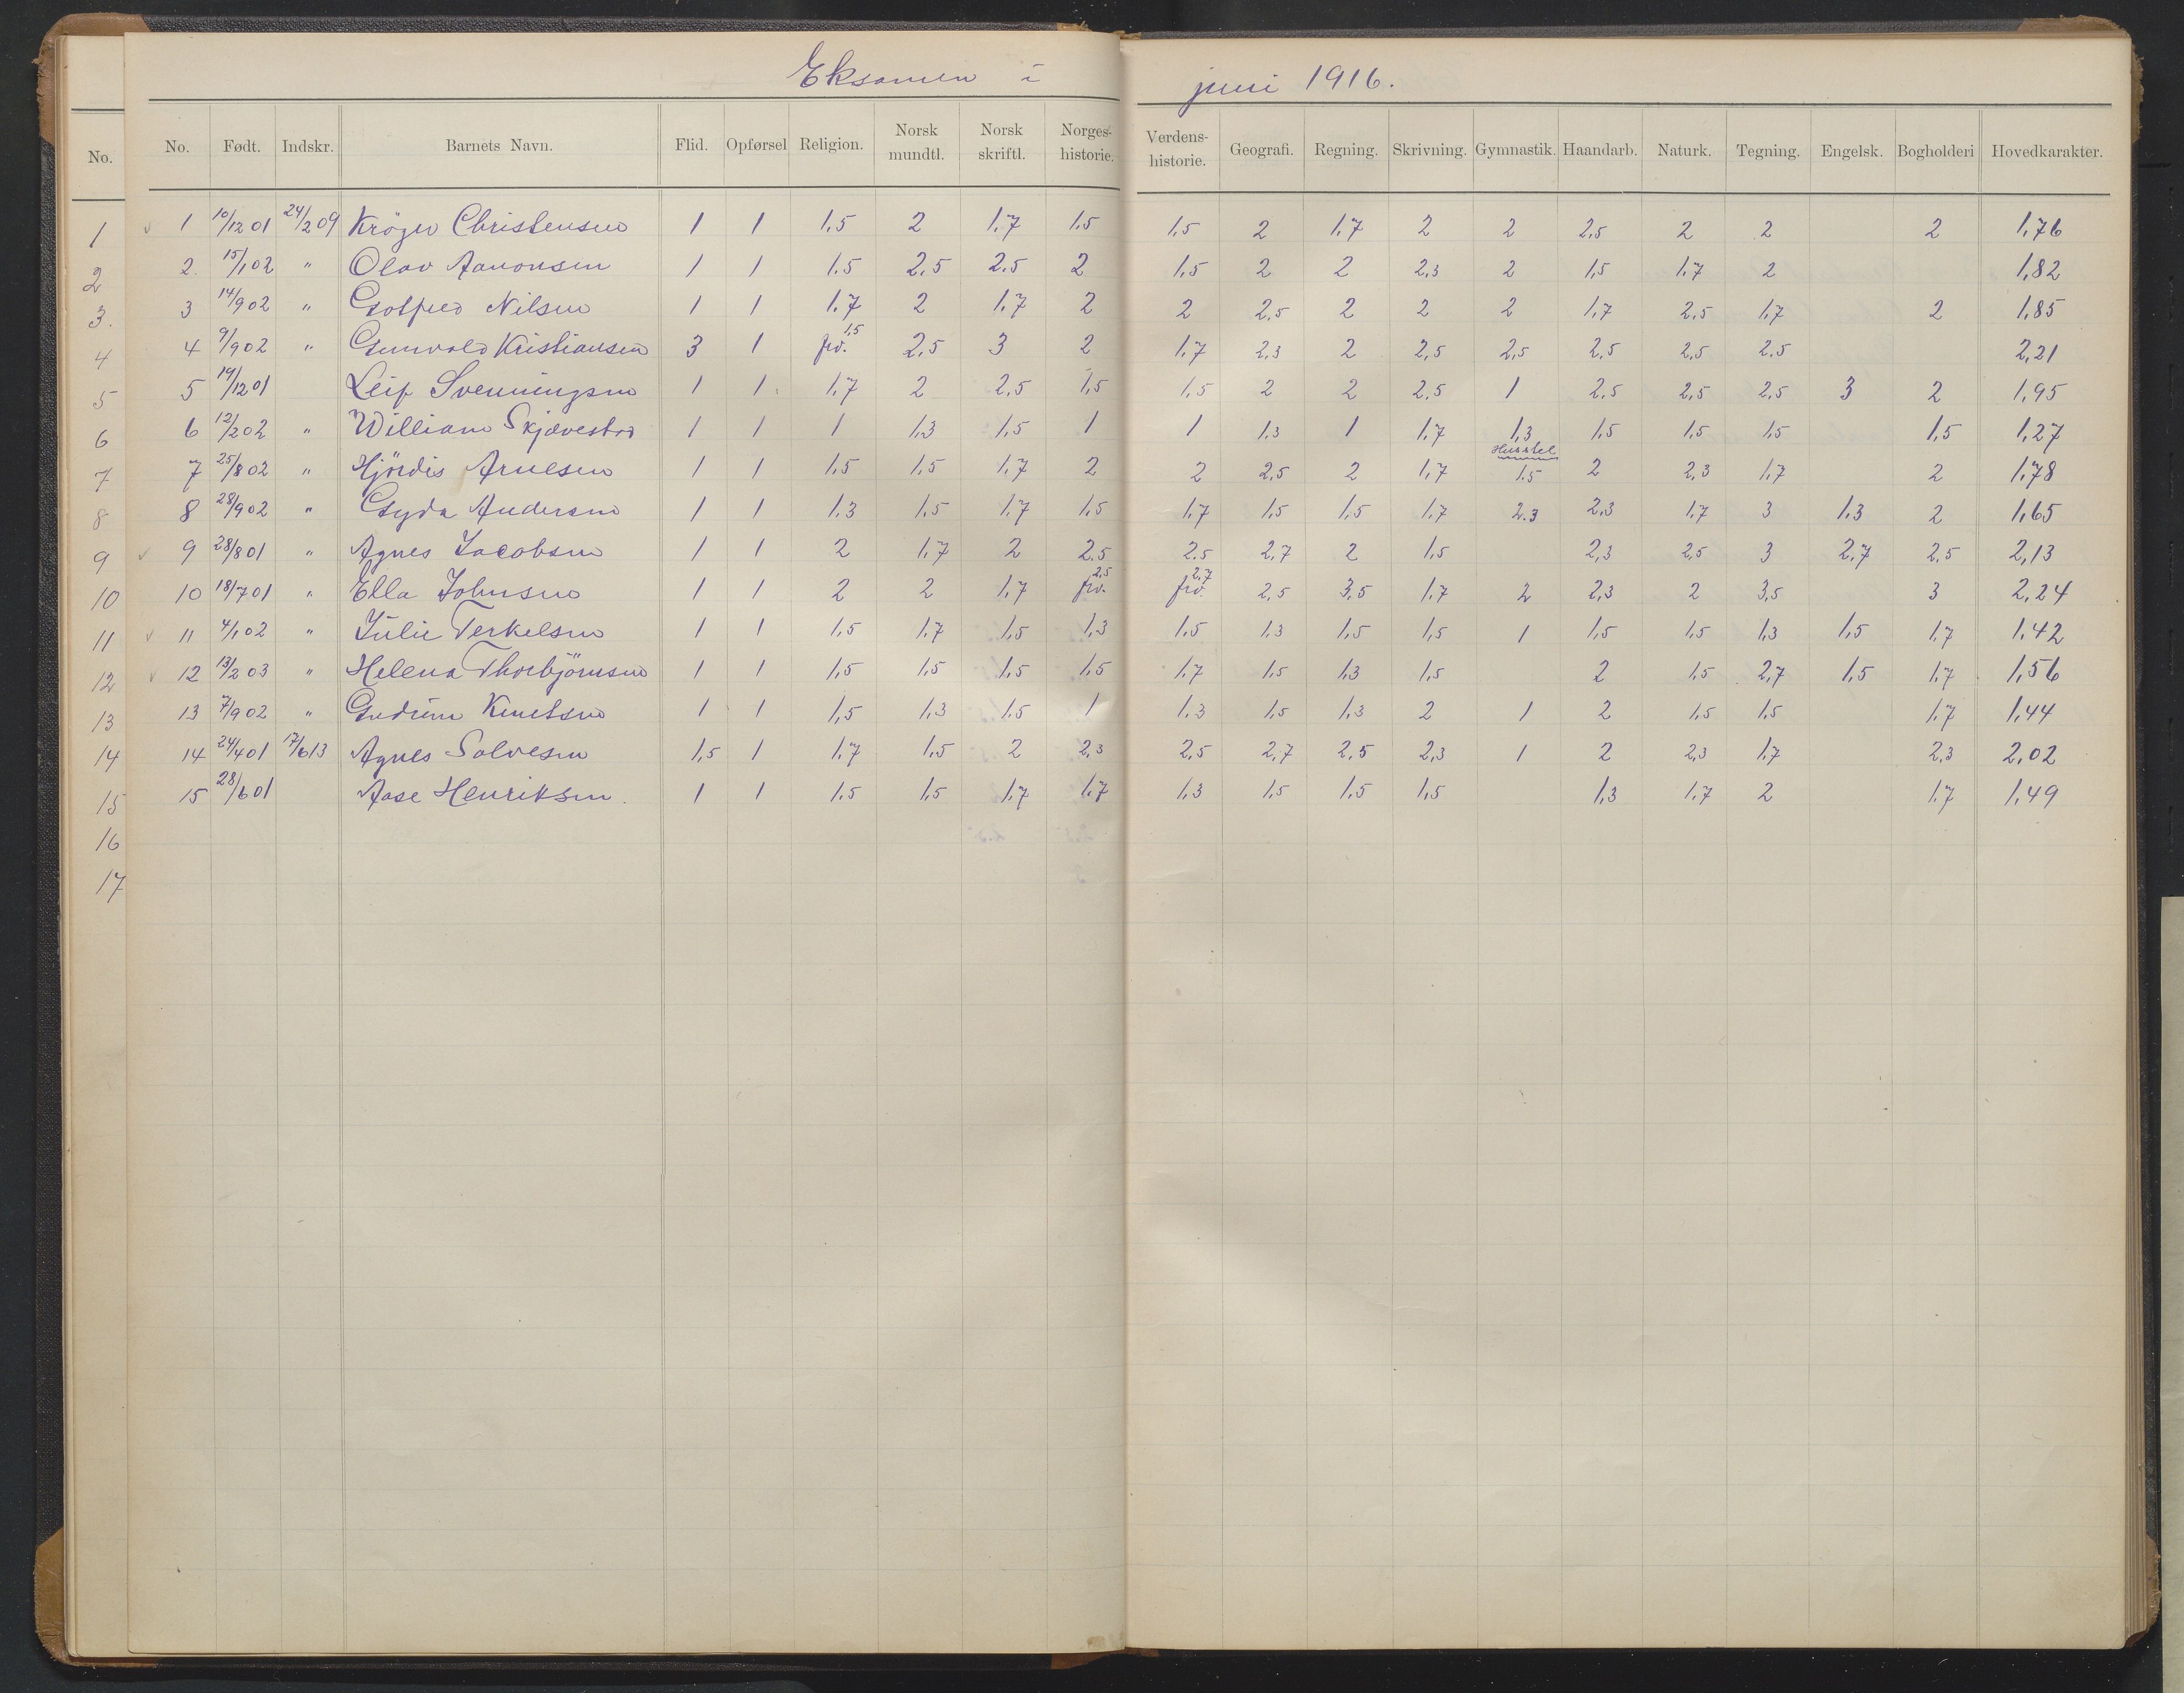 Eksamen i juni 1916.
No. No. Født. Indskr. Barnets Navn. Flid. Opførsel Religion. Norsk mundtl. Norsk skriftl. Norges-historie. Verdens-historie. Geografi. Regning. Skrivning. Gymnastik. Haandarb. Naturk. Tegning. Engelsk. Bogholderi Hovedkarakter.
1 ✓ 1 10/12 01 24/2 09 Kröger Christensen 1 1 1.5 2 1.7 1.5 1.5 2 1.7 2 2 2.5 2 2 2 1,76
2 2. 15/1 02 " Olav Aanonsen 1 1 1.5 2.5 2.5 2 1.5 2 2 2.3 2 1.5 1.7 2 1,82
3. 3 14/9 02 " Gotfred Nilsen 1 1 1.7 2 1.7 2 2 2.5 2 2 2 1.7 2.5 1.7 2 1,85
4 4 9/9 02 " Gunvald Kristiansen 3 1 frv. 1.5 2.5 3 2 1.7 2.3 2 2.5 2.5 2.5 2.5 2.5 2,21
5 5 14/12 01 Leif Svenningsen 1 1 1.7 2 2.5 1.5 1.5 2 2 2.5 1 2.5 2.5 2.5 3 2 1,95
6 6 12/2 02 " William Skjævestad 1 1 1 1.3 1.5 1 1 1.3 1 1.7 1.3 1.5 1.5 1.5 1.5 1,27
Husstel
7 7 25/8 02 " Hjördis Arnesen 1 1 1.5 1.5 1.7 2 2 2.5 2 1.7 1.5 2 2.3 1.7 2 1,78
8 8 28/9 02 " Gyda Andersen 1 1 1.3 1.5 1.7 1.5 1.7 1.5 1.5 1.7 2.3 2.3 1.7 3 1.3 2 1,65
9 ✓ 9 28/8 01 " Agnes Jacobsen 1 1 2 1.7 2 2.5 2.5 2.7 2 1.5 2.3 2.5 3 2.7 2.5 2,13
10 10 18/7 01 " Ella Johnsen 1 1 2 2 1.7 frv. 2.5 frv. 2.7 2.5 3.5 1.7 2 2.3 2 3.5 3 2,24
11 ✓ 11 4/1 02 " Julie Terkelsen 1 1 1.5 1.7 1.5 1.3 1.5 1.3 1.5 1.5 1 1.5 1.5 1.3 1.5 1.7 1,42
12 ✓ 12 13/2 03 " Helena Thorbjörnsen 1 1 1.5 1.5 1.5 1.5 1.7 1.5 1.3 1.5 2 1.5 2.7 1.5 1.7 1,56
13 13 7/9 02 " Gudrun Knutsen 1 1 1.5 1.3 1.5 1 1.3 1.5 1.3 2 1 2 1.5 1.5 1.7 1,44
14 14 24/4 01 17/6 13 Agnes Salvesen 1,5 1 1.7 1.5 2 2.3 2.5 2.7 2.5 2.3 1 2 2.3 1.7 2.3 2,02
15 15 28/6 01 Aase Henriksen. 1 1 1.5 1.5 1.7 1.7 1.3 1.5 1.5 1.5 1.3 1.7 2 1.7 1,49
16
17